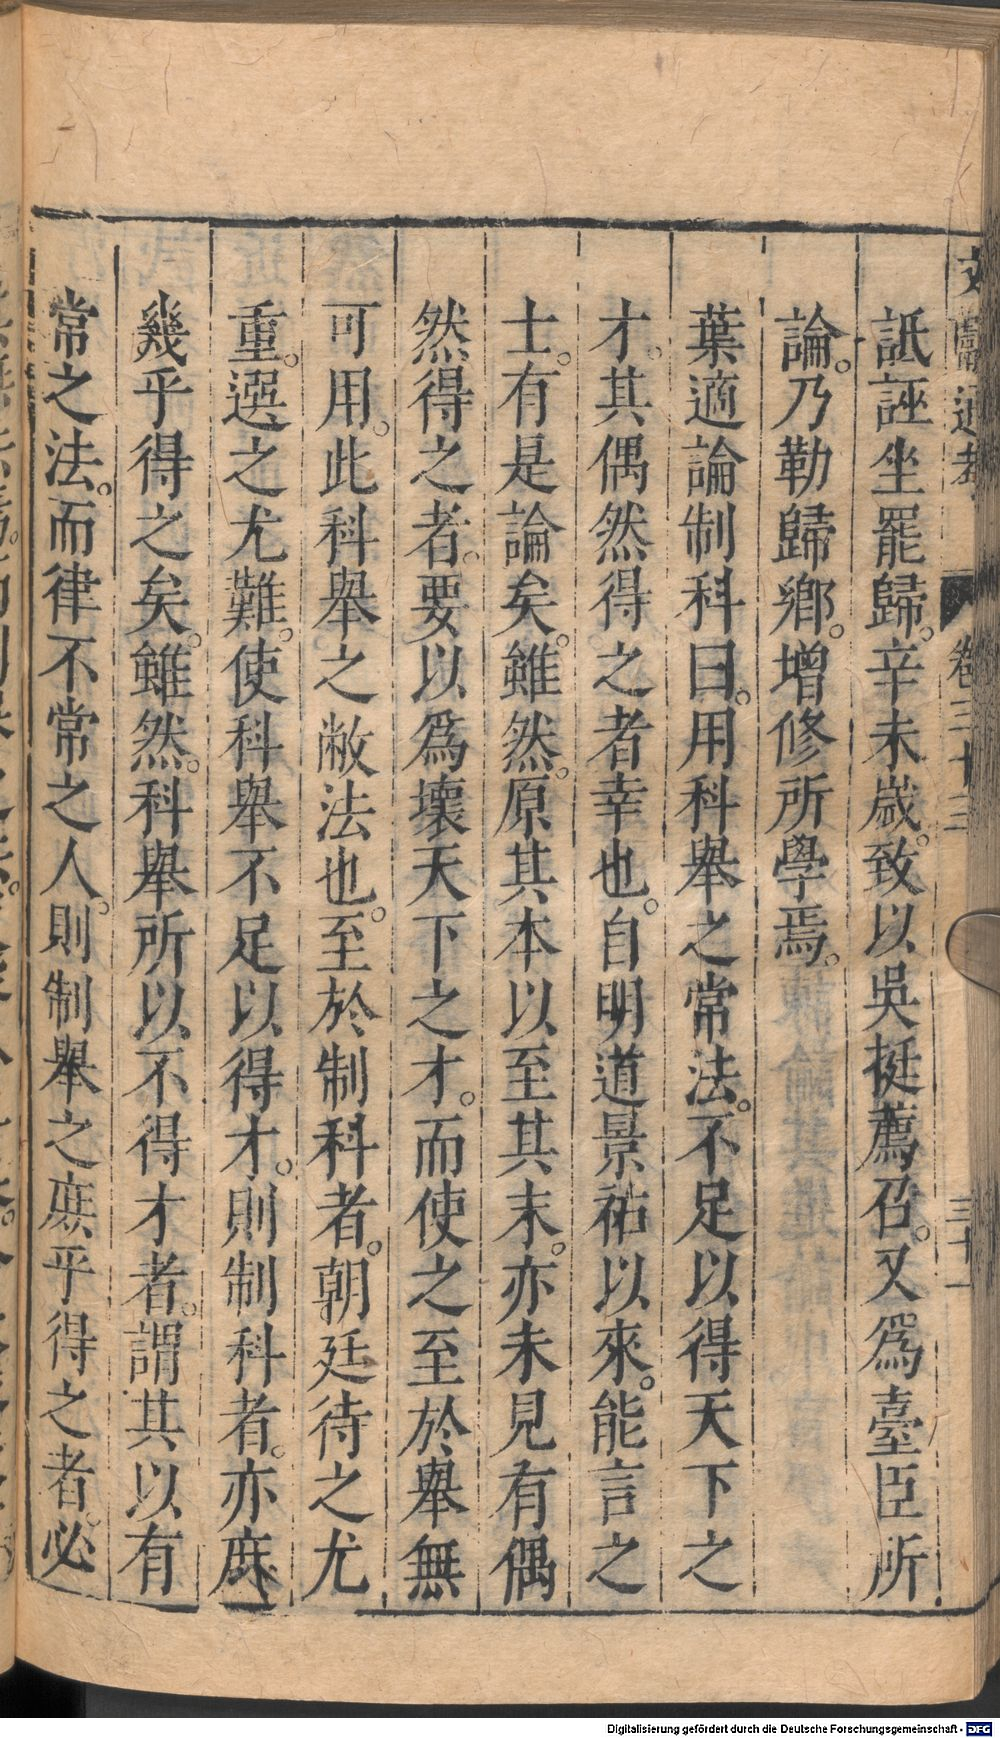 文獻通考 卷三十三 三十一
詆誣坐罷歸。辛未歲。致以吳挺薦召。又爲臺臣所
論。乃勒歸鄉。增修所學焉。
葉適論制科曰。用科舉之常法。不足以得天下之
才。其偶然得之者幸也。自明道景祐以來。能言之
士。有是論矣。雖然。原其本以至其末。亦未見有偶
然得之者。要以爲壞天下之才。而使之至於舉無
可用。此科舉之敝法也。至於制科者。朝廷待之尤
重。選之尤難。使科舉不足以得才。則制科者。亦庶
幾乎得之矣。雖然。科舉所以不得才者。謂其以有
常之法。而律不常之人。則制舉之庶乎得之者。必
Digitalisierung gefördert durch die Deutsche Forschungsgemeinschaft - DFG